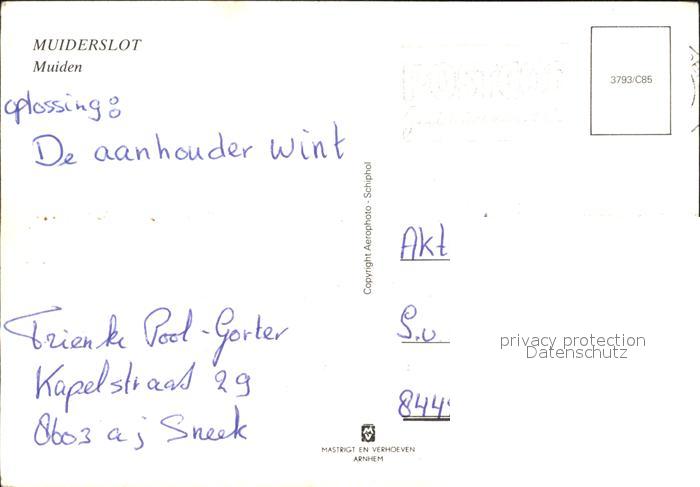 MUIDERSLOT
Muiden
oplossing:
De aanhouder wint
3793/C85
Copyright Aerophoto - Schiphol
Akt
S.v
privacy protection
Datenschutz
Trienke Pool-Gorter
Kapelstraat 29
8603 aj Sneek
844
MASTRIGT EN VERHOEVEN
ARNHEM